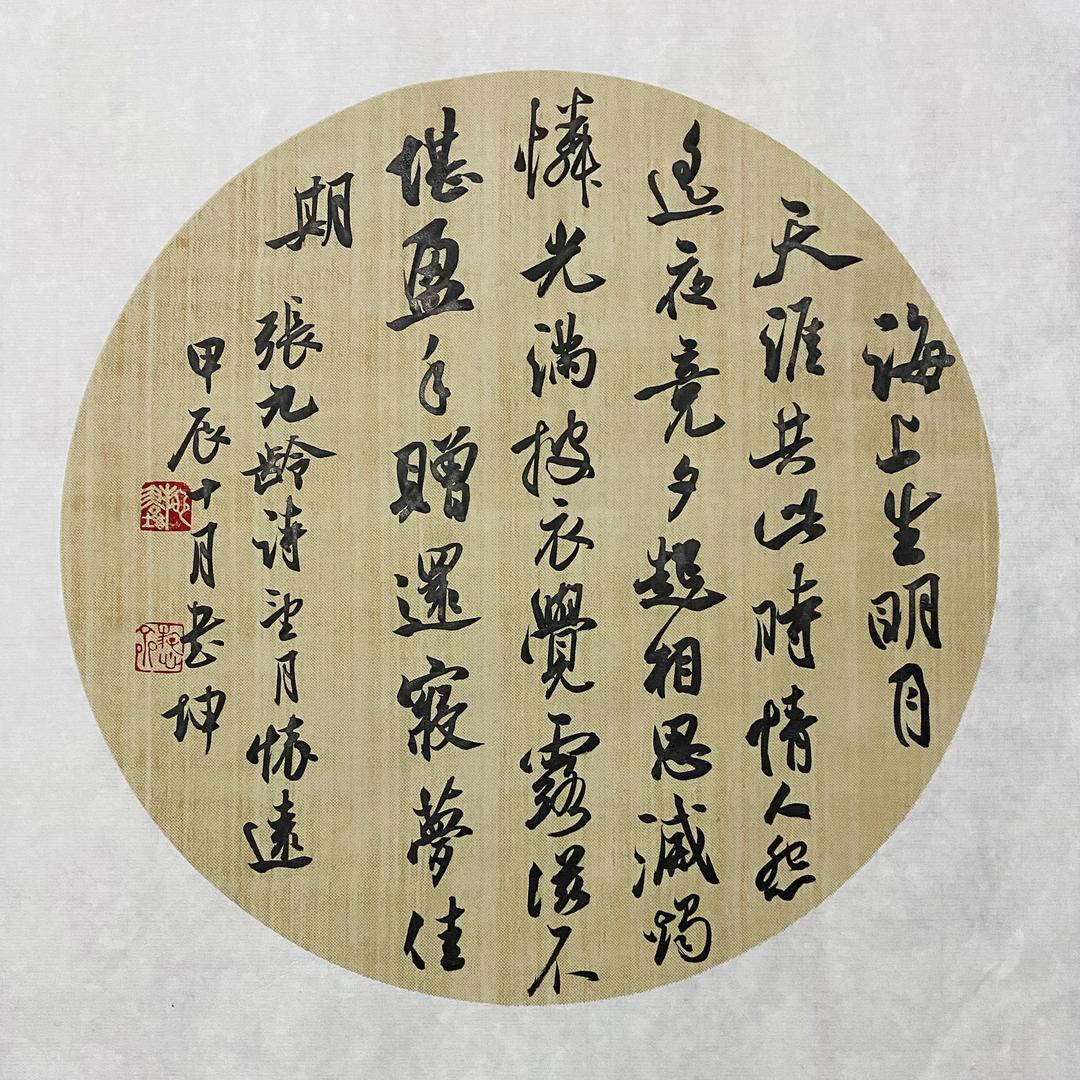 海上生明月
天涯共此時情人怨
遙夜竟夕起相思滅燭
憐光滿披衣覺露滋不
堪盈手贈還寢夢佳
期
張九齡詩望月懷遠
甲辰十月書坤